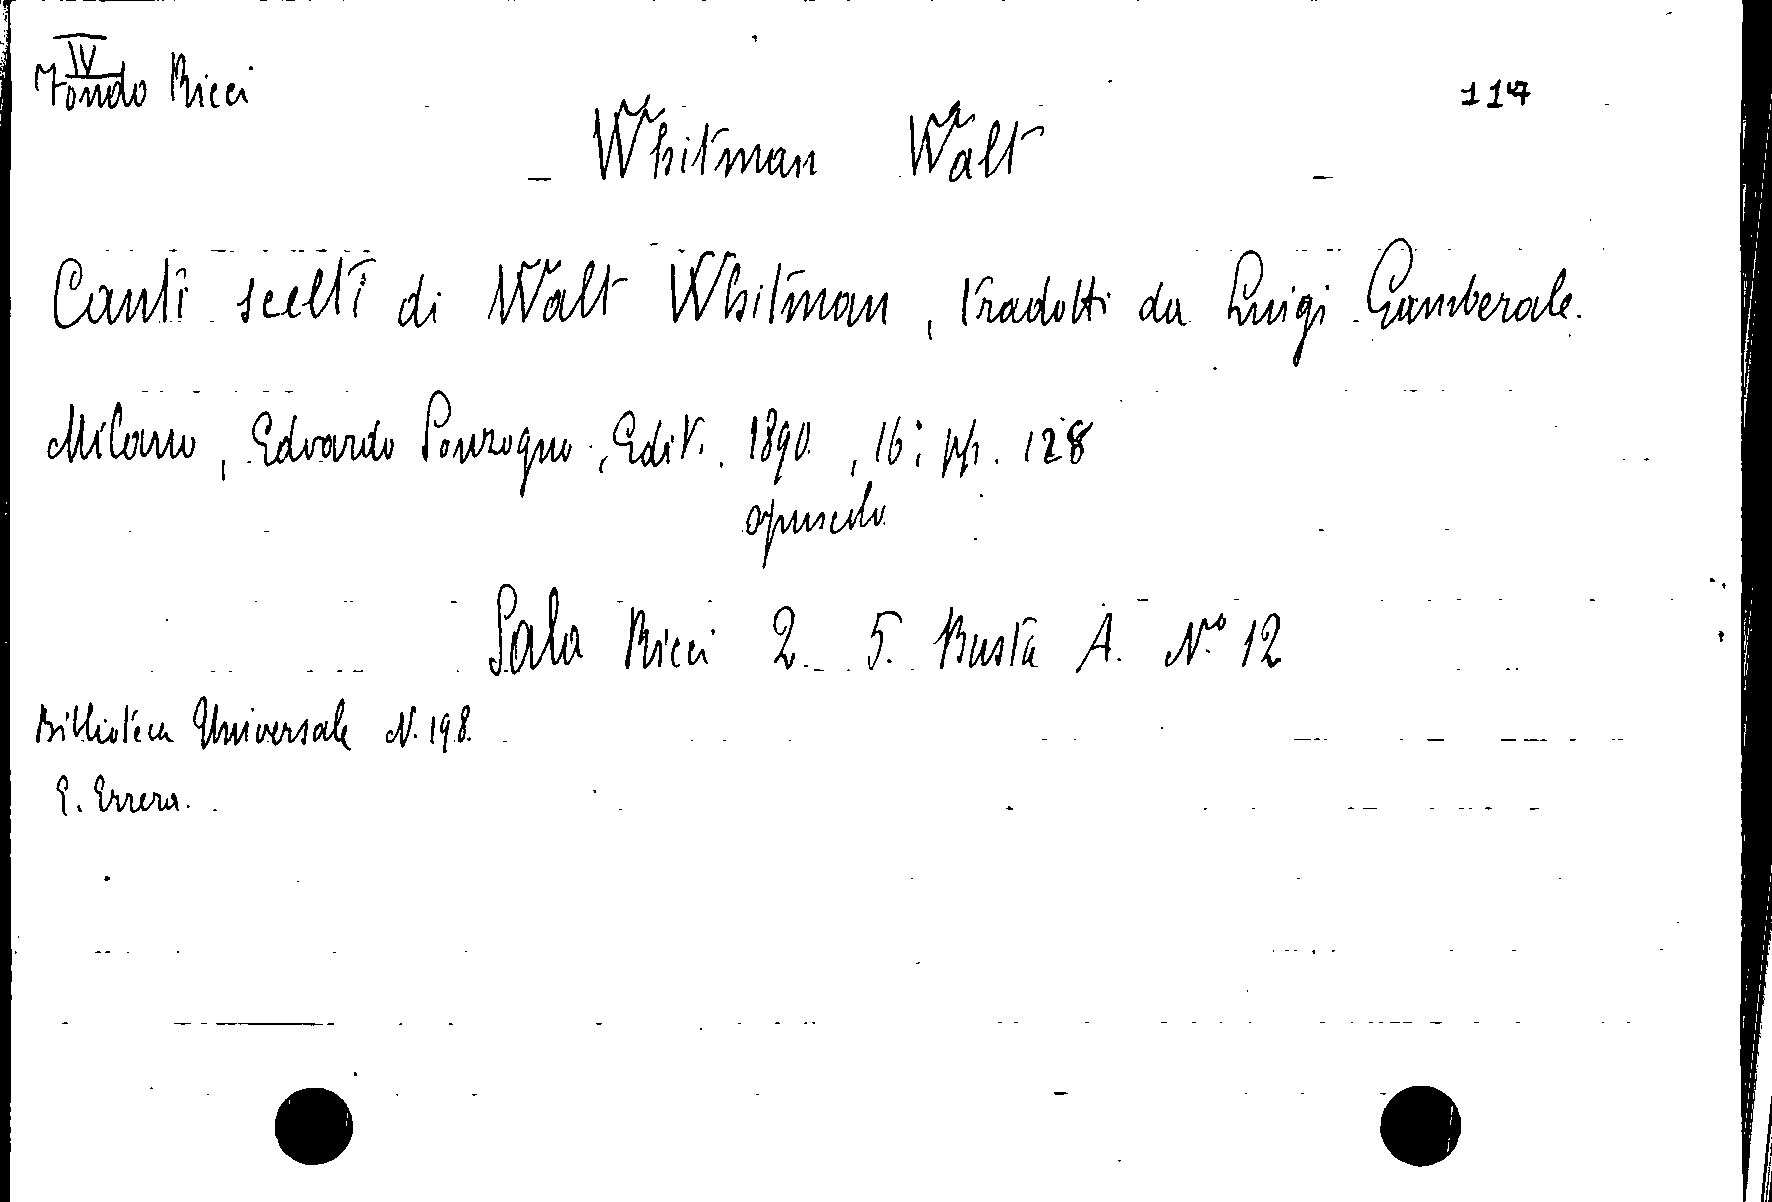 IV
Fondo Ricci
117
Whitman Walt
Canti scelti di Walt Whitman, tradotti da Luigi Gamberale.
Milano, Edoardo Sonzogno, Edit. 1890, 16: pp. 128
opuscolo
Sala Ricci 2. 5. Busta A. N.ro 12
Biblioteca Universale N. 198.
E. Errera.